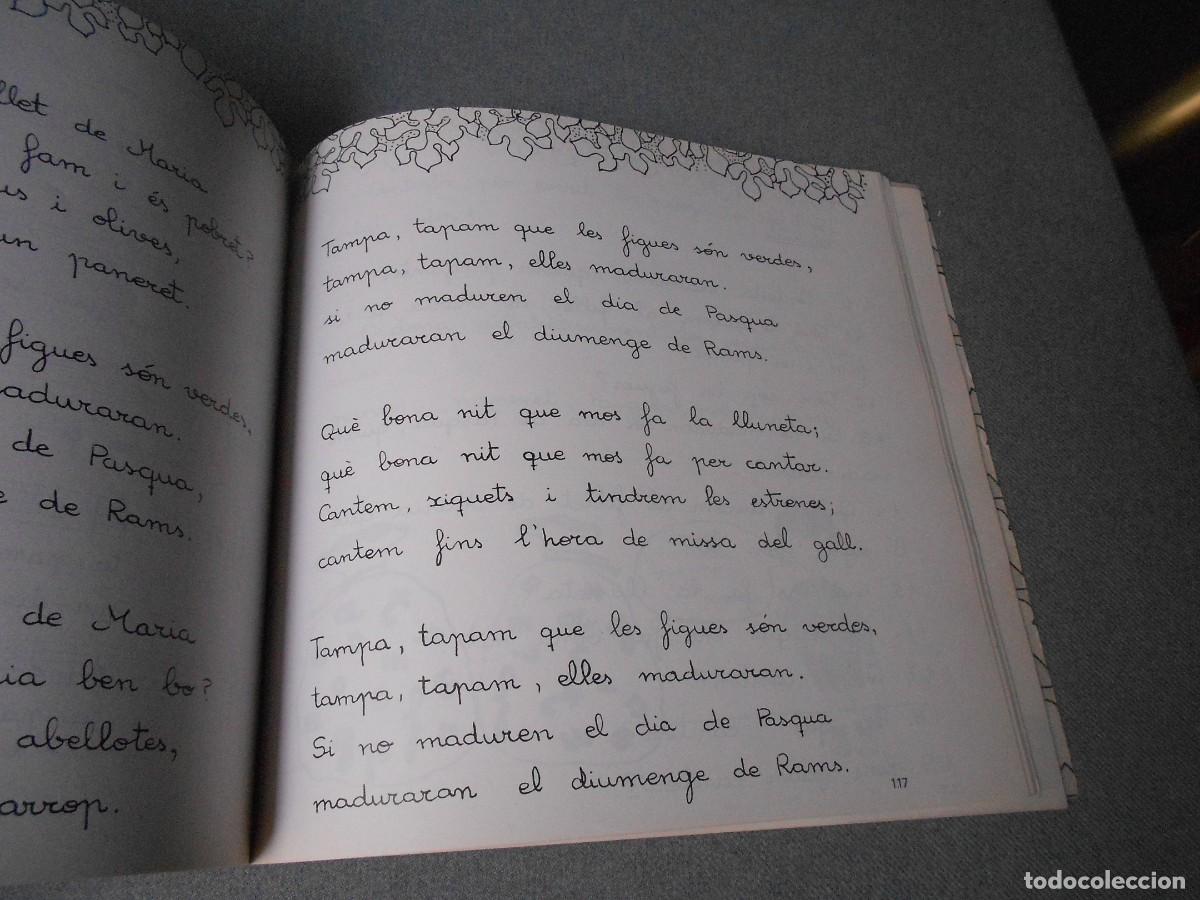 llet de Maria
fam i és pobret?
us i olives,
un paneret.
figues són verdes,
aduraran.
de Pasqua,
e de Rams.
de Maria
ia ben bo?
abellotes,
arrop.
Tampa, tapam que les figues són verdes,
tampa, tapam, elles maduraran.
si no maduren el dia de Pasqua
maduraran el diumenge de Rams.
Què bona nit que mos fa la lluneta;
què bona nit que mos fa per cantar.
Cantem, xiquets i tindrem les estrenes;
cantem fins l'hora de missa del gall.
Tampa, tapam que les figues són verdes,
tampa, tapam, elles maduraran.
Si no maduren el dia de Pasqua
maduraran el diumenge de Rams.
117
todocoleccion